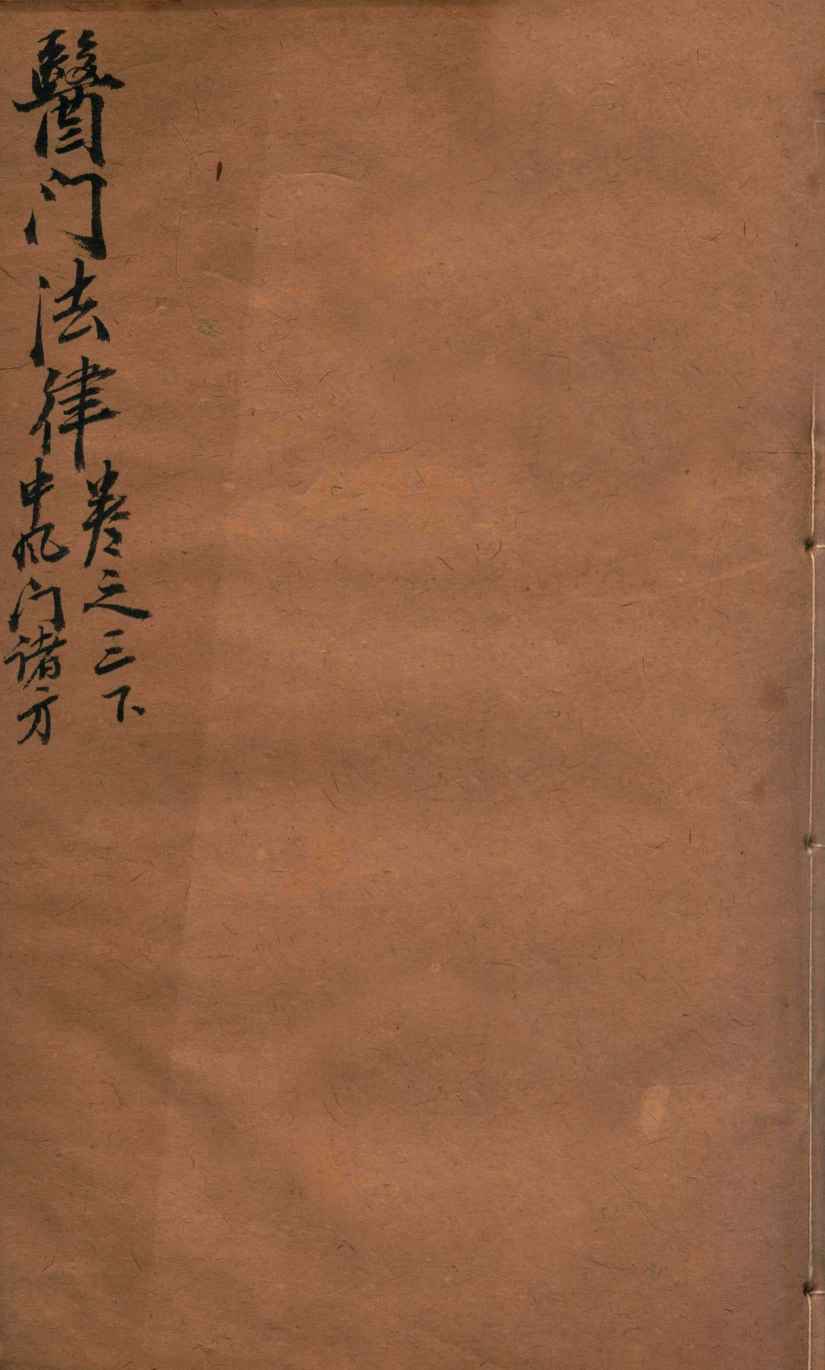 醫门法律
卷之三下
中风门诸方